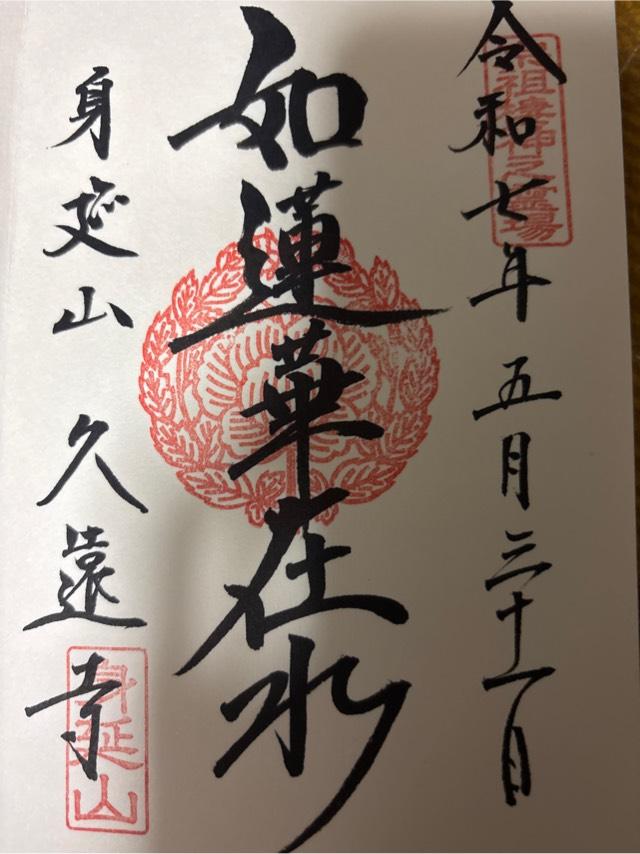 令和七年五月三十一日
宗祖棲神之霊場
如蓮華在水
身延山久遠寺
身延山